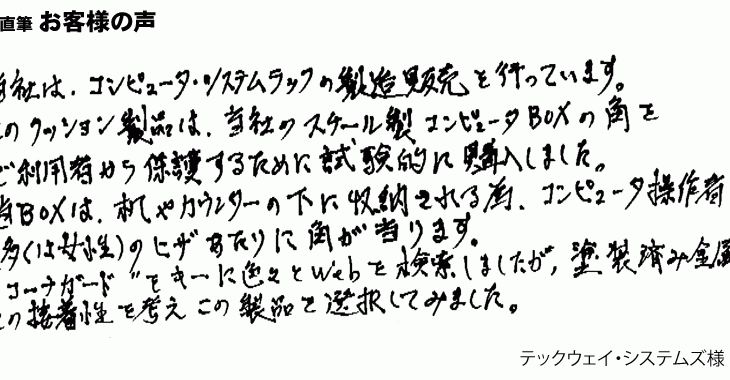 直筆 お客様の声
当社は、コンピュータ・システムラックの製造販売を行っています。
このクッション製品は、当社のスチール製コンピュータBOXの角を
ご利用者から保護するために試験的に購入しました。
当BOXは、机やカウンターの下に収納される為、コンピュータ操作者
多くは女性)のヒザあたりに角が当ります。
コーナガード"をキーに色々とWebを検索しましたが、塗装済み金属
の接着性を考えこの製品を選択してみました。
テックウェイ・システムズ様